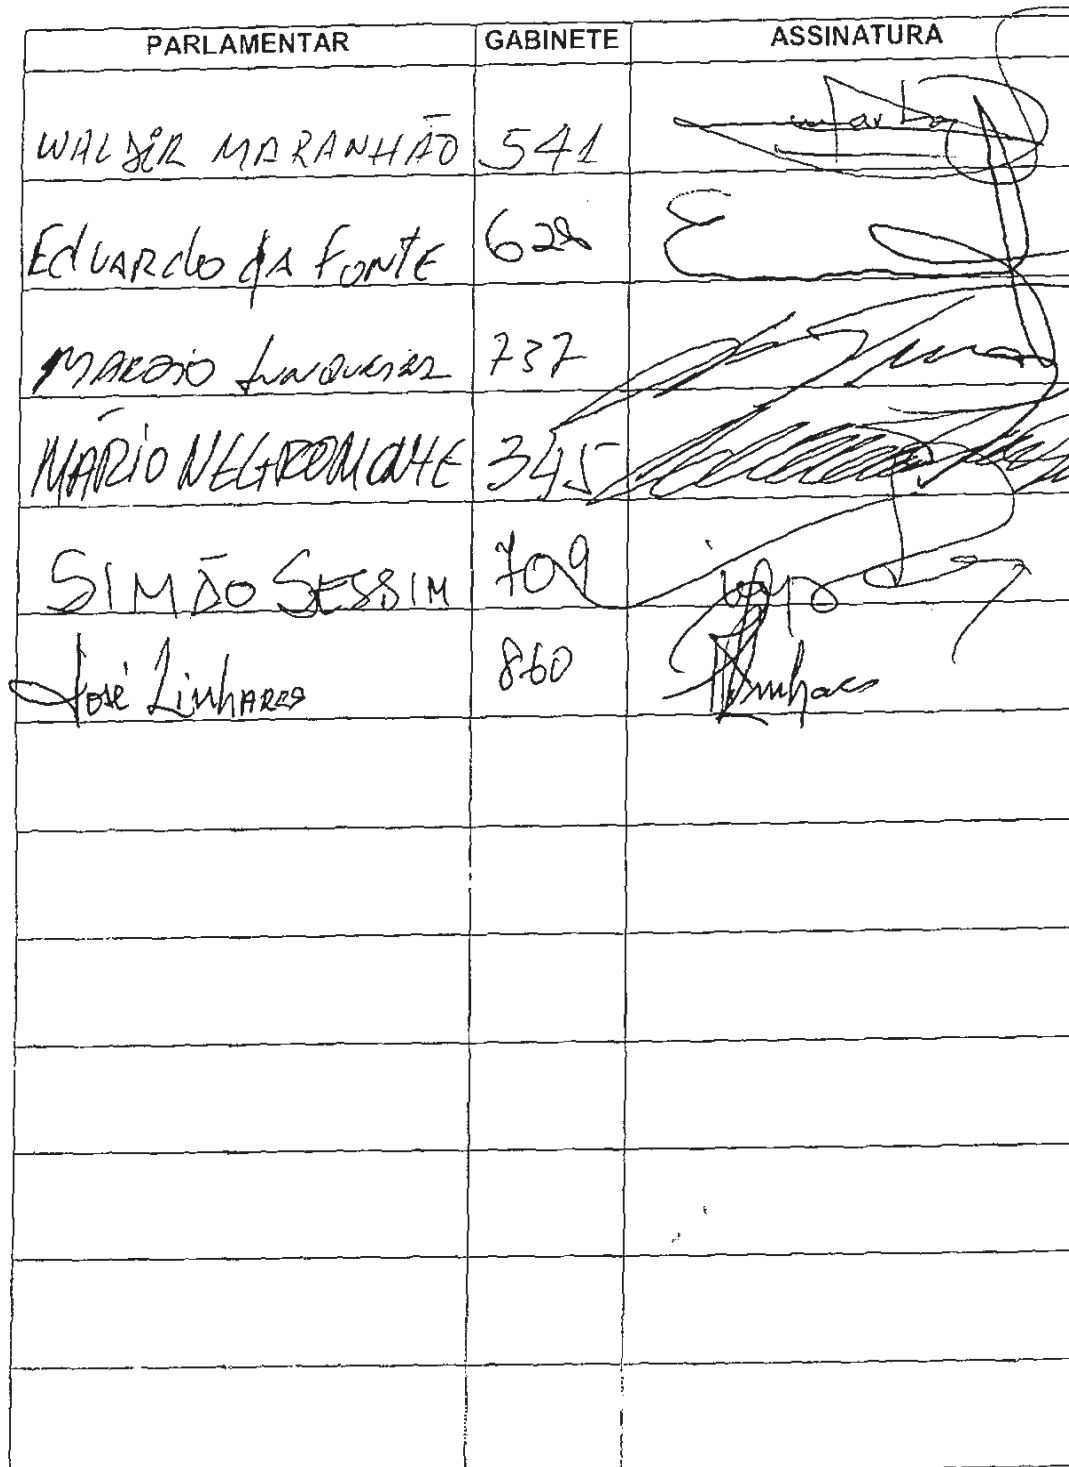 PARLAMENTAR GABINETE ASSINATURA
WALDIR MARANHÃO 541
Eduardo da Fonte 628
MARCIO Junqueira 737
MÁRIO NEGROMONTE 345
SIMÃO SESSIM 709
José Linhares 860 Linhares